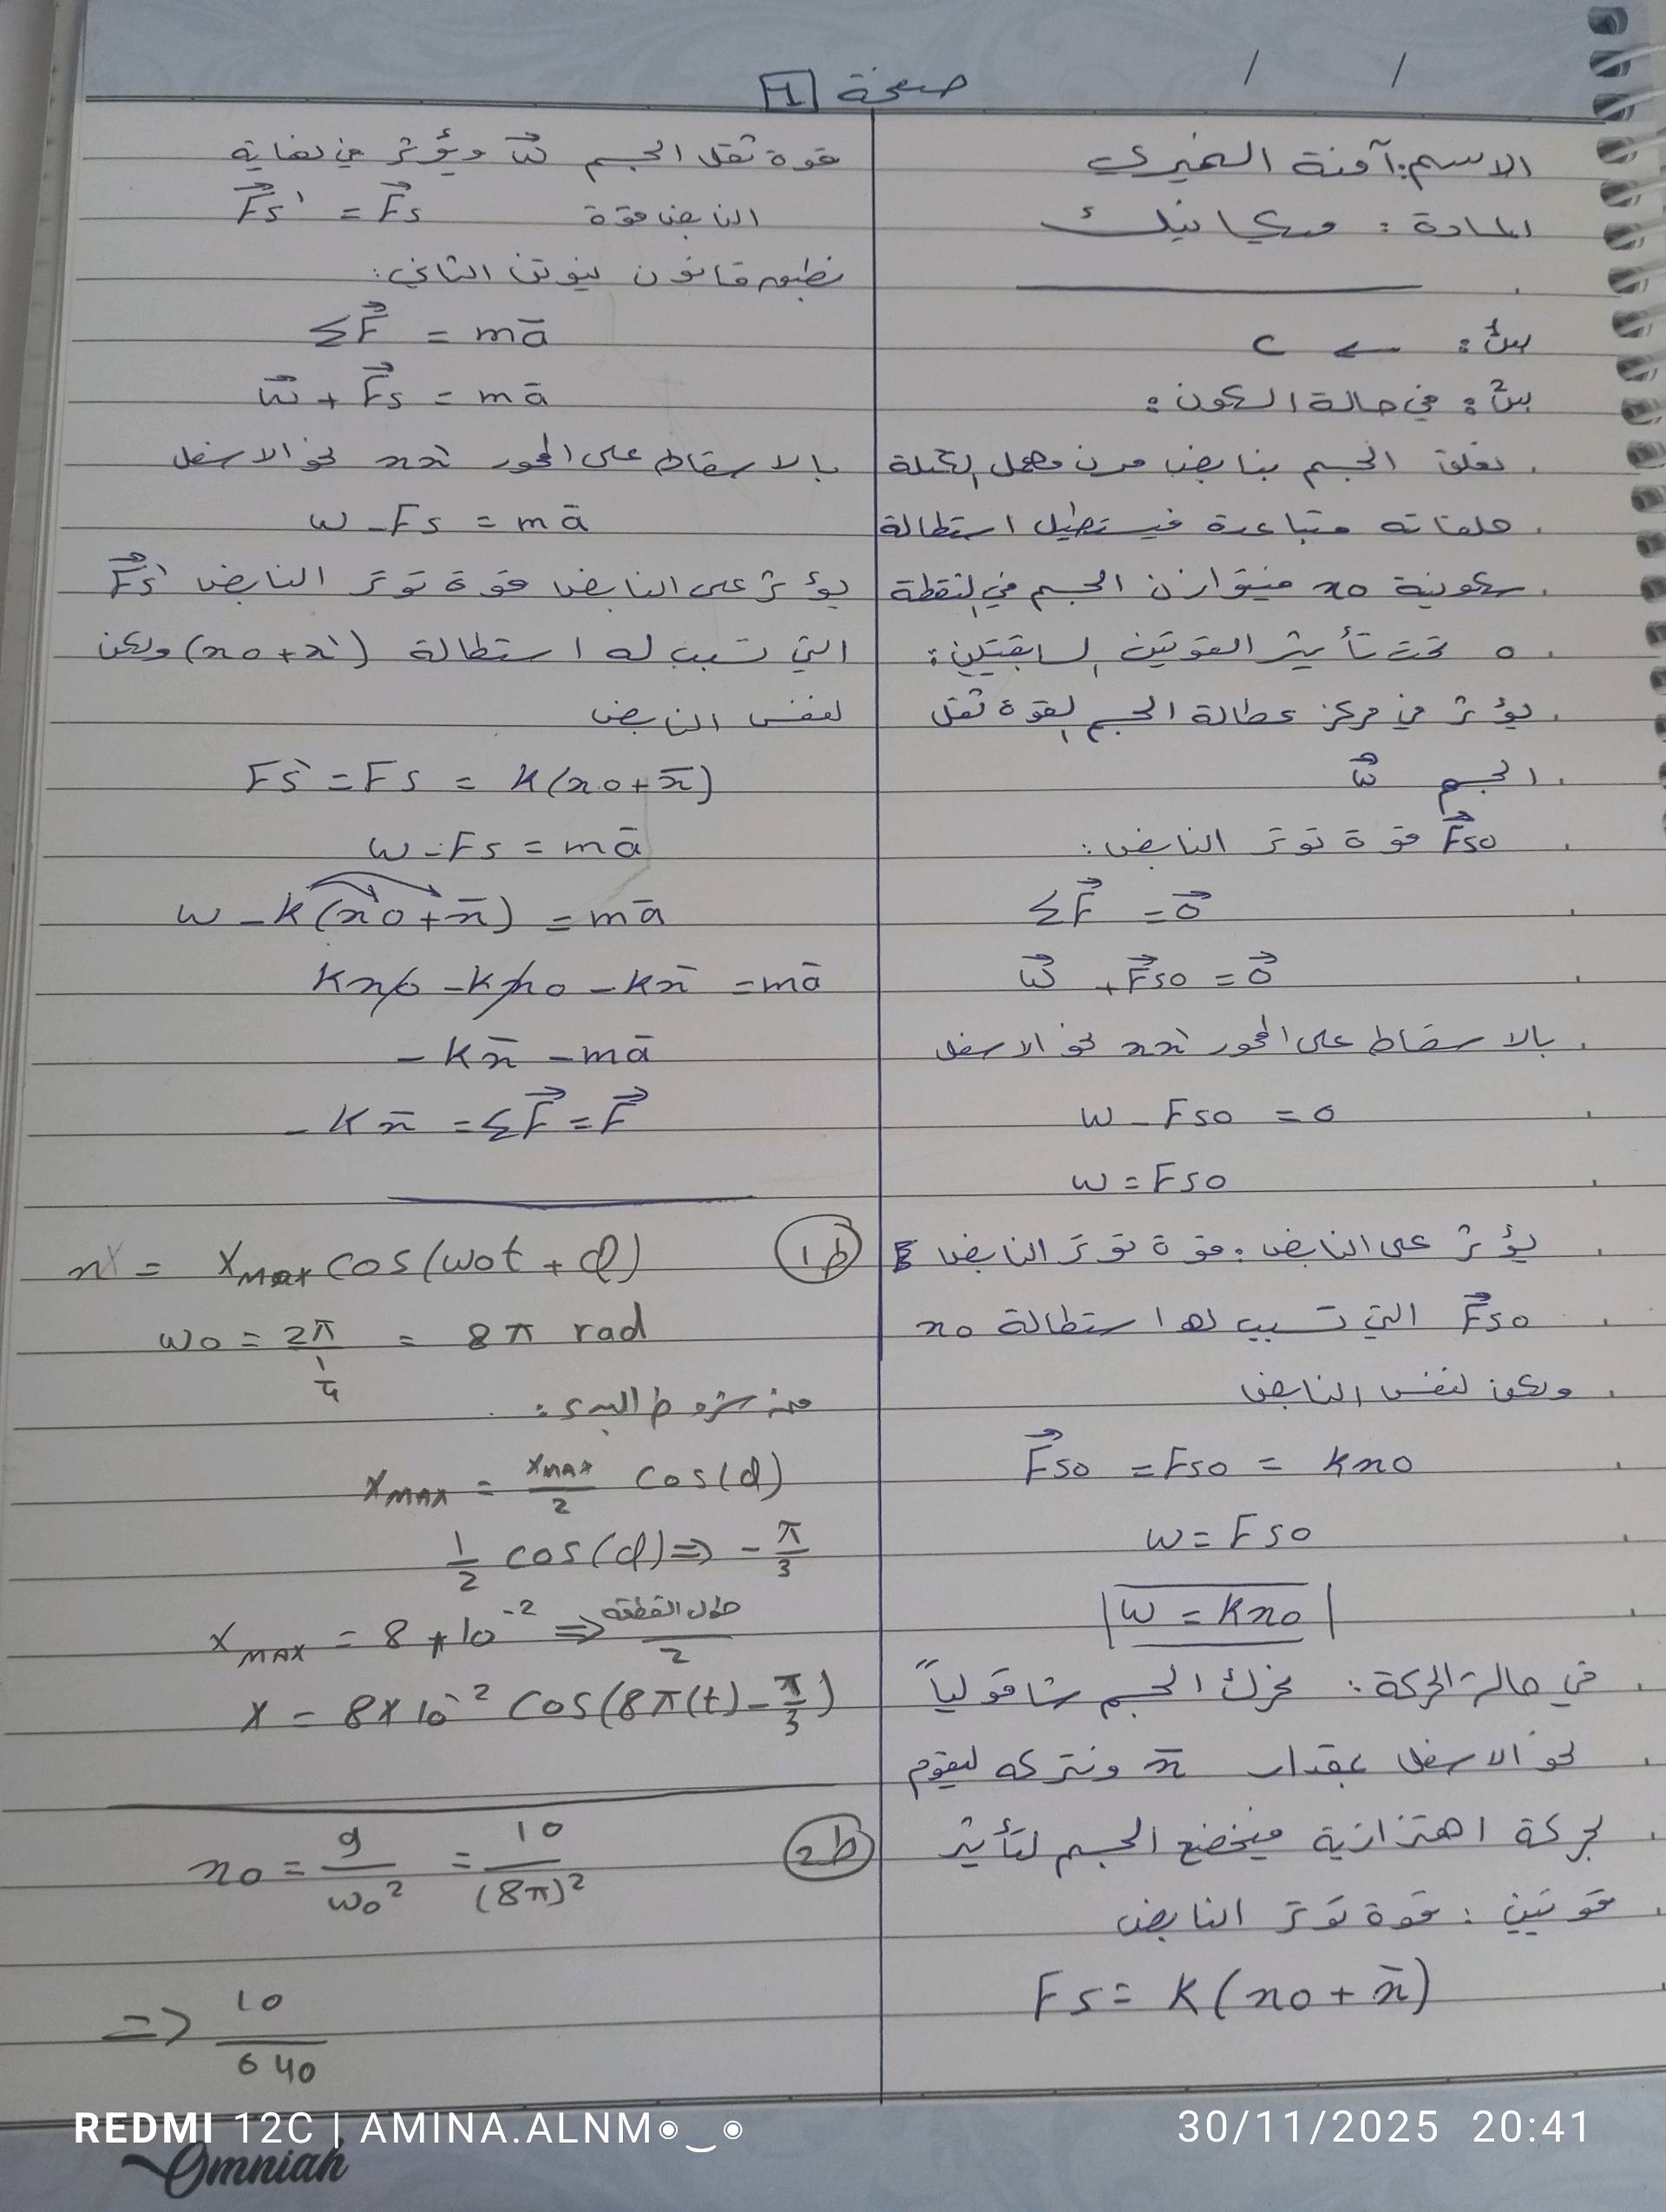 صفحة 1
/ /
الاسم: آمنة النميري
المادة: ميكانيك
س1: ← C
س2: في حالة السكون:
نعلق الجسم بنابض مرن مهمل الكتلة
حلقاته متباعدة فيستطيل استطالة
سكونية x0 فيتوازن الجسم في النقطة
o تحت تأثير القوتين السابقتين:
يؤثر في مركز عطالة الجسم لقوة ثقل
الجسم W⃗
F⃗s0 قوة توتر النابض:
ΣF⃗ = 0⃗
W⃗ + F⃗s0 = 0⃗
بالاسقاط على المحور xx̀ نحو الاسفل
W - Fs0 = 0
W = Fs0
يؤثر على النابض: قوة توتر النابض
F⃗s0 التي تسبب لها استطالة x0
ولكن لنفس النابض
F⃗s0 = Fs0 = Kx0
W = Fs0
W = Kx0
في حالة الحركة: نحرك الجسم شاقولياً
نحو الاسفل بمقدار x̄ ونتركه ليقوم
بحركة اهتزازية فيخضع الجسم لتأثير
قوتين: قوة توتر النابض
Fs = K(x0 + x̄)
قوة ثقل الجسم W⃗ ويؤثر في نهاية
النابض قوة F⃗s' = F⃗s
نطبق قانون نيوتن الثاني:
ΣF⃗ = mā
W⃗ + F⃗s = mā
بالاسقاط على المحور xx̀ نحو الاسفل
W - Fs = mā
يؤثر على النابض قوة توتر النابض F⃗s̀
التي تسبب له استطالة (x0 + x̄) ولكن
لنفس النابض
Fs̀ = Fs = K(x0 + x̄)
W - Fs = mā
W - K(x0 + x̄) = mā
Kx0 - Kx0 - Kx̄ = mā
- Kx̄ - mā
- Kx̄ = ΣF⃗ = F⃗
ط1
x = XMAX cos(ω0t + φ)
ω0 = 2π/(1/4) = 8π rad
من شروط البدء:
XMAX = XMAX/2 cos(φ)
1/2 cos(φ) ⇒ - π/3
XMAX = 8 * 10⁻² ⇒ طول القطعة/2
X = 8×10⁻² cos(8π(t) - π/3)
ط2
x0 = g/ω0² = 10/(8π)²
⇒ 10/640
REDMI 12C | AMINA.ALNM◉‿◉
30/11/2025 20:41
Omniah